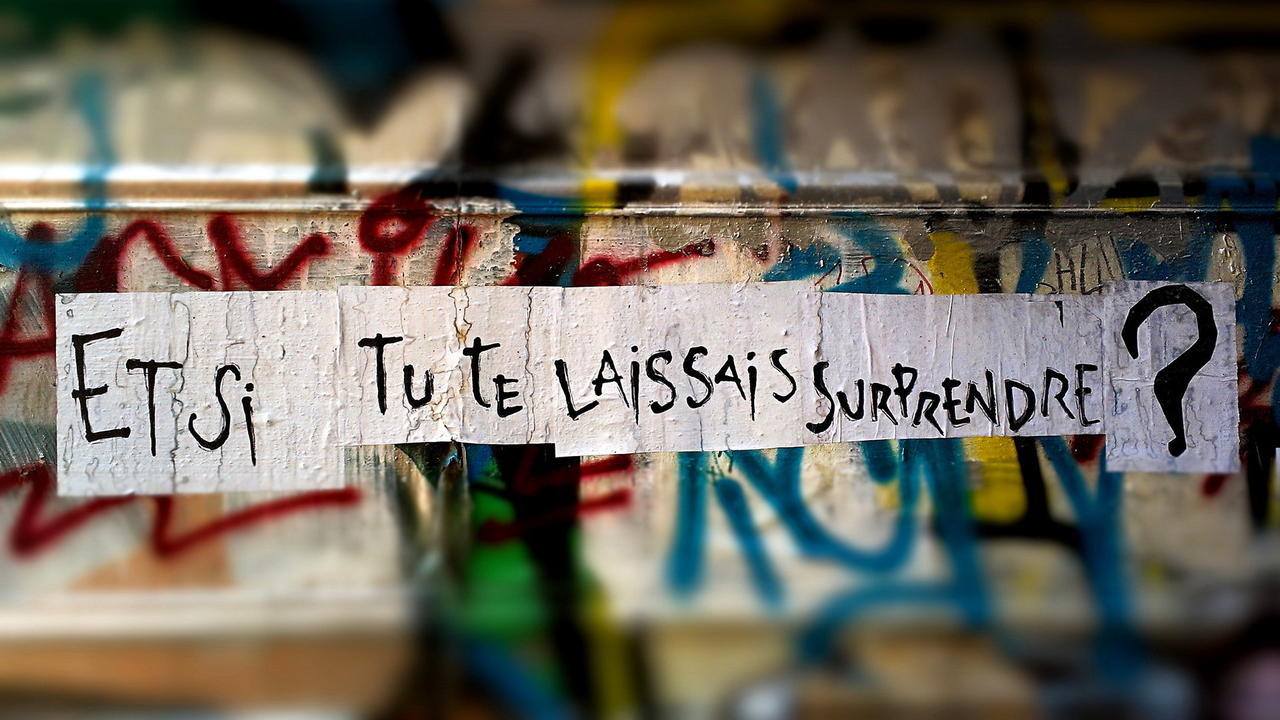 ET Si TU TE LAiSSAiS SURPRENDRE ?